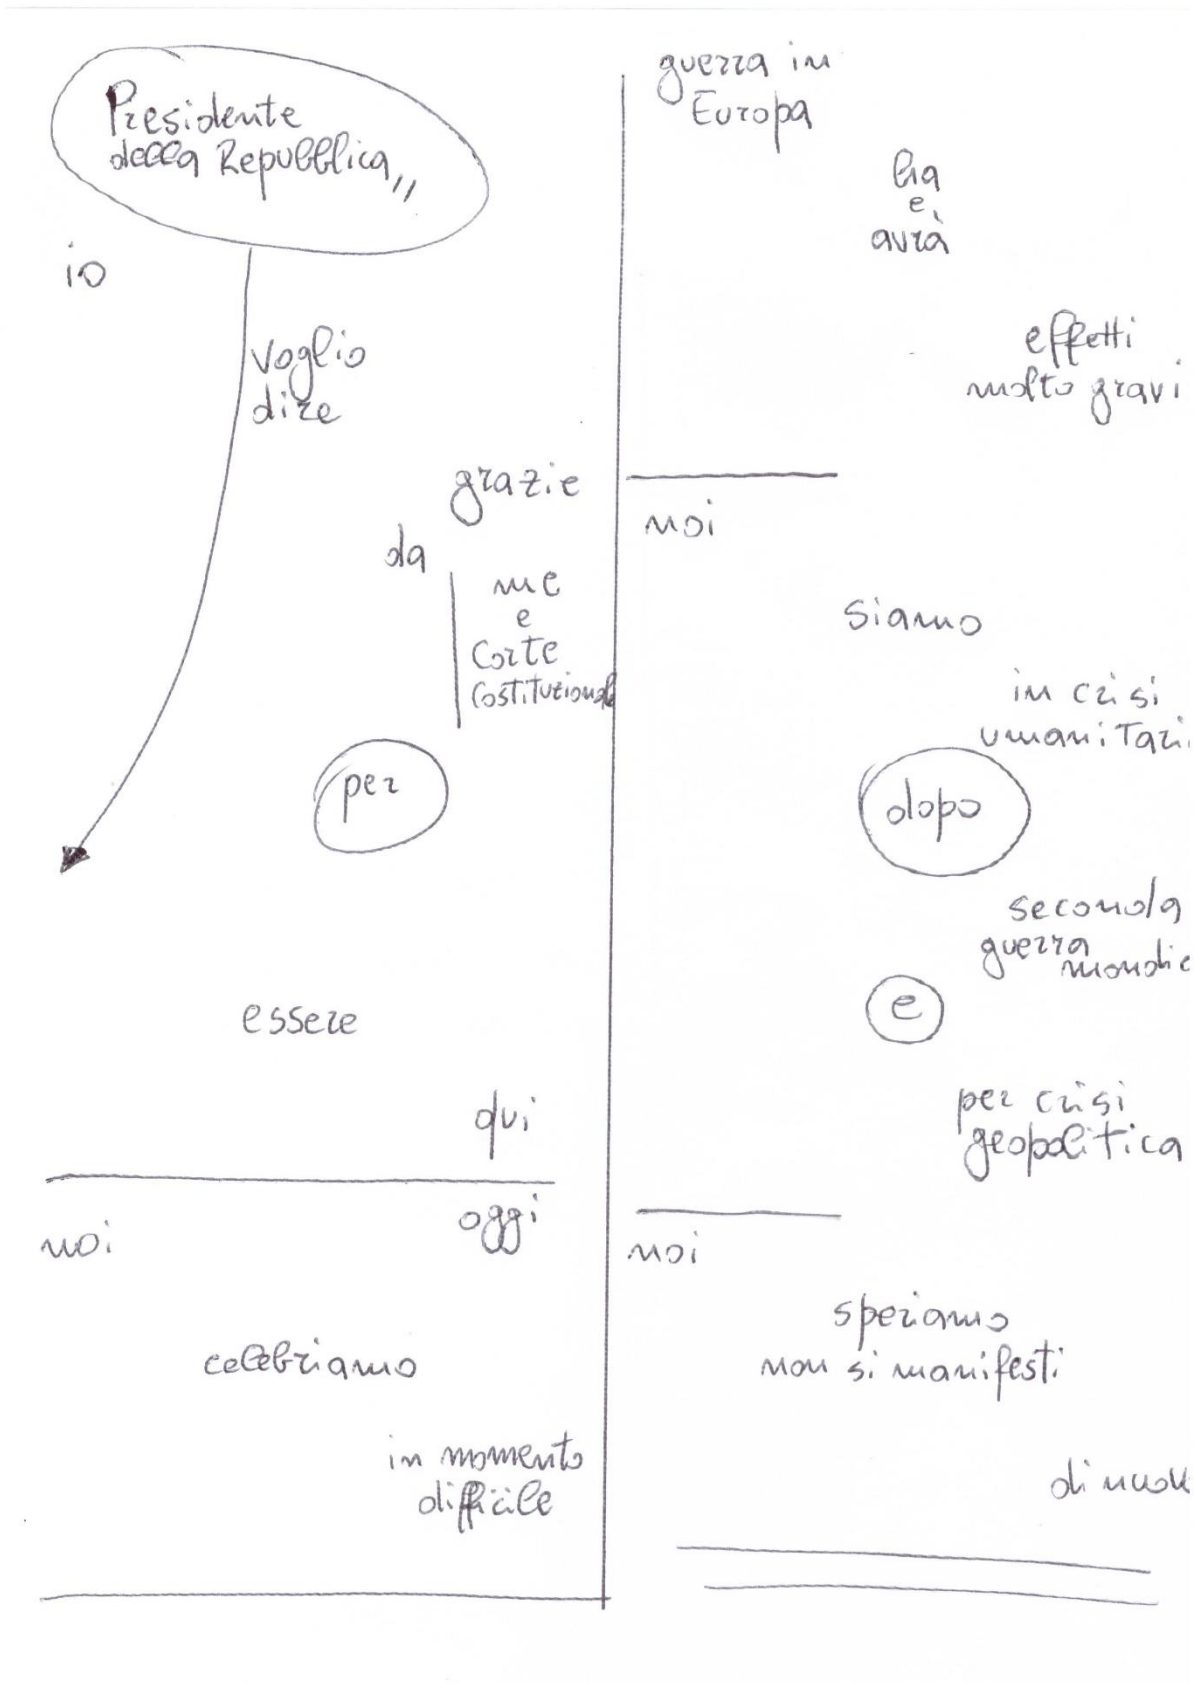 Presidente
della Repubblica,,
io
voglio
dire
grazie
da
me
e
Corte
Costituzional
per
essere
qui
noi
oggi
celebriamo
in momento
difficile
guerra in
Europa
ha
e
avrà
effetti
molto gravi
noi
siamo
in crisi
umanitari
dopo
seconda
guerra
mondie
e
per crisi
geopolitica
noi
speriamo
non si manifesti
di nuov